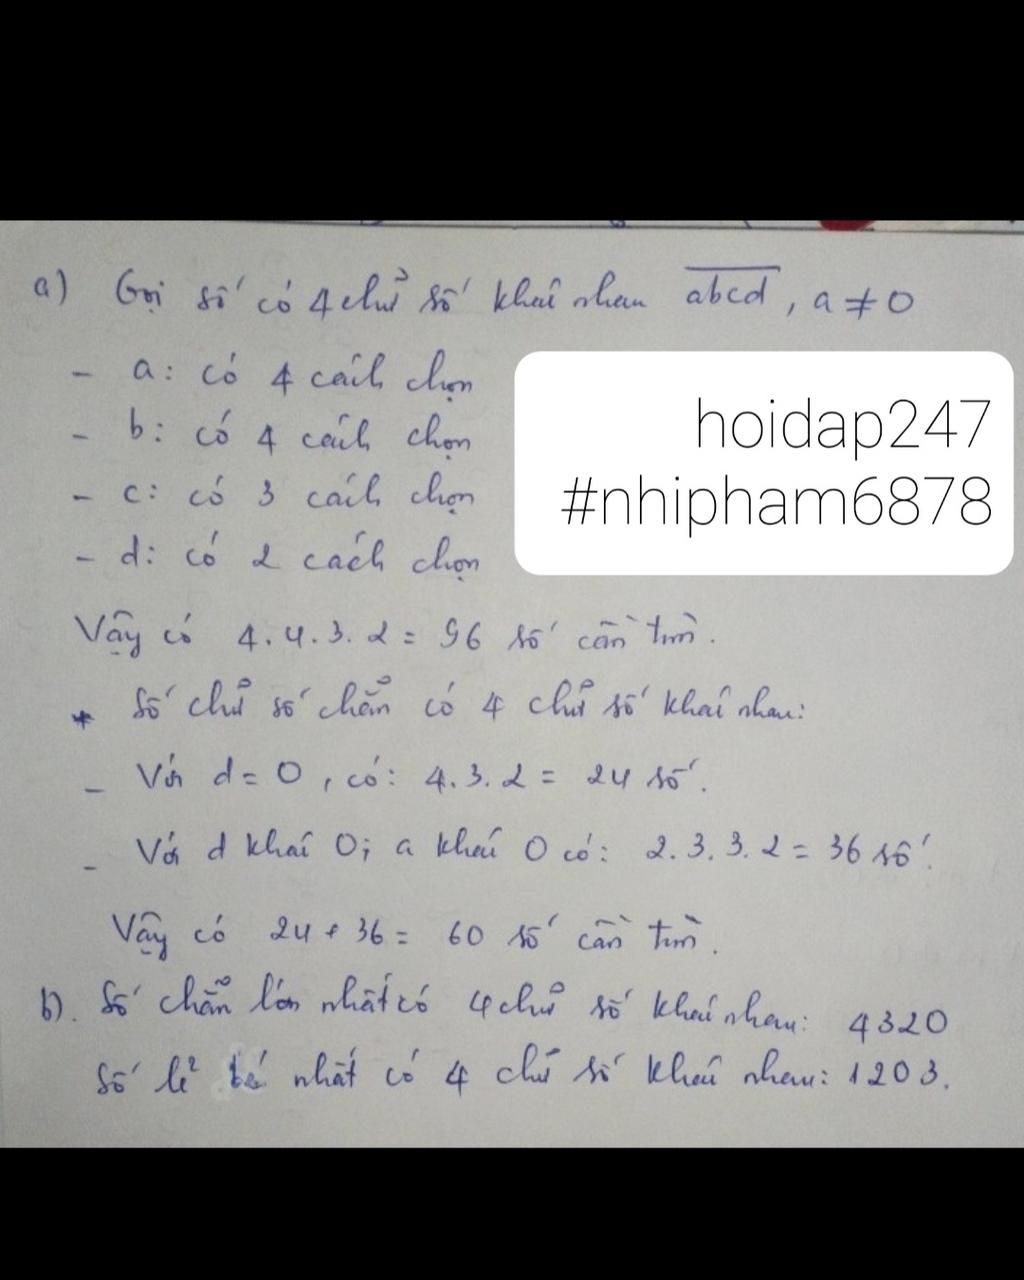 a) Gọi số có 4 chữ số khác nhau abcd, a ≠ 0
- a: có 4 cách chọn
- b: có 4 cách chọn
- c: có 3 cách chọn
- d: có 2 cách chọn
hoidap247
#nhipham6878
Vậy có 4.4.3.2 = 96 số cần tìm.
* Số chữ số chẵn có 4 chữ số khác nhau:
- Với d = 0, có: 4.3.2 = 24 số.
- Với d khác 0; a khác 0 có: 2.3.3.2 = 36 số.
Vậy có 24 + 36 = 60 số cần tìm.
b). Số chẵn lớn nhất có 4 chữ số khác nhau: 4320
Số lẻ bé nhất có 4 chữ số khác nhau: 1203.